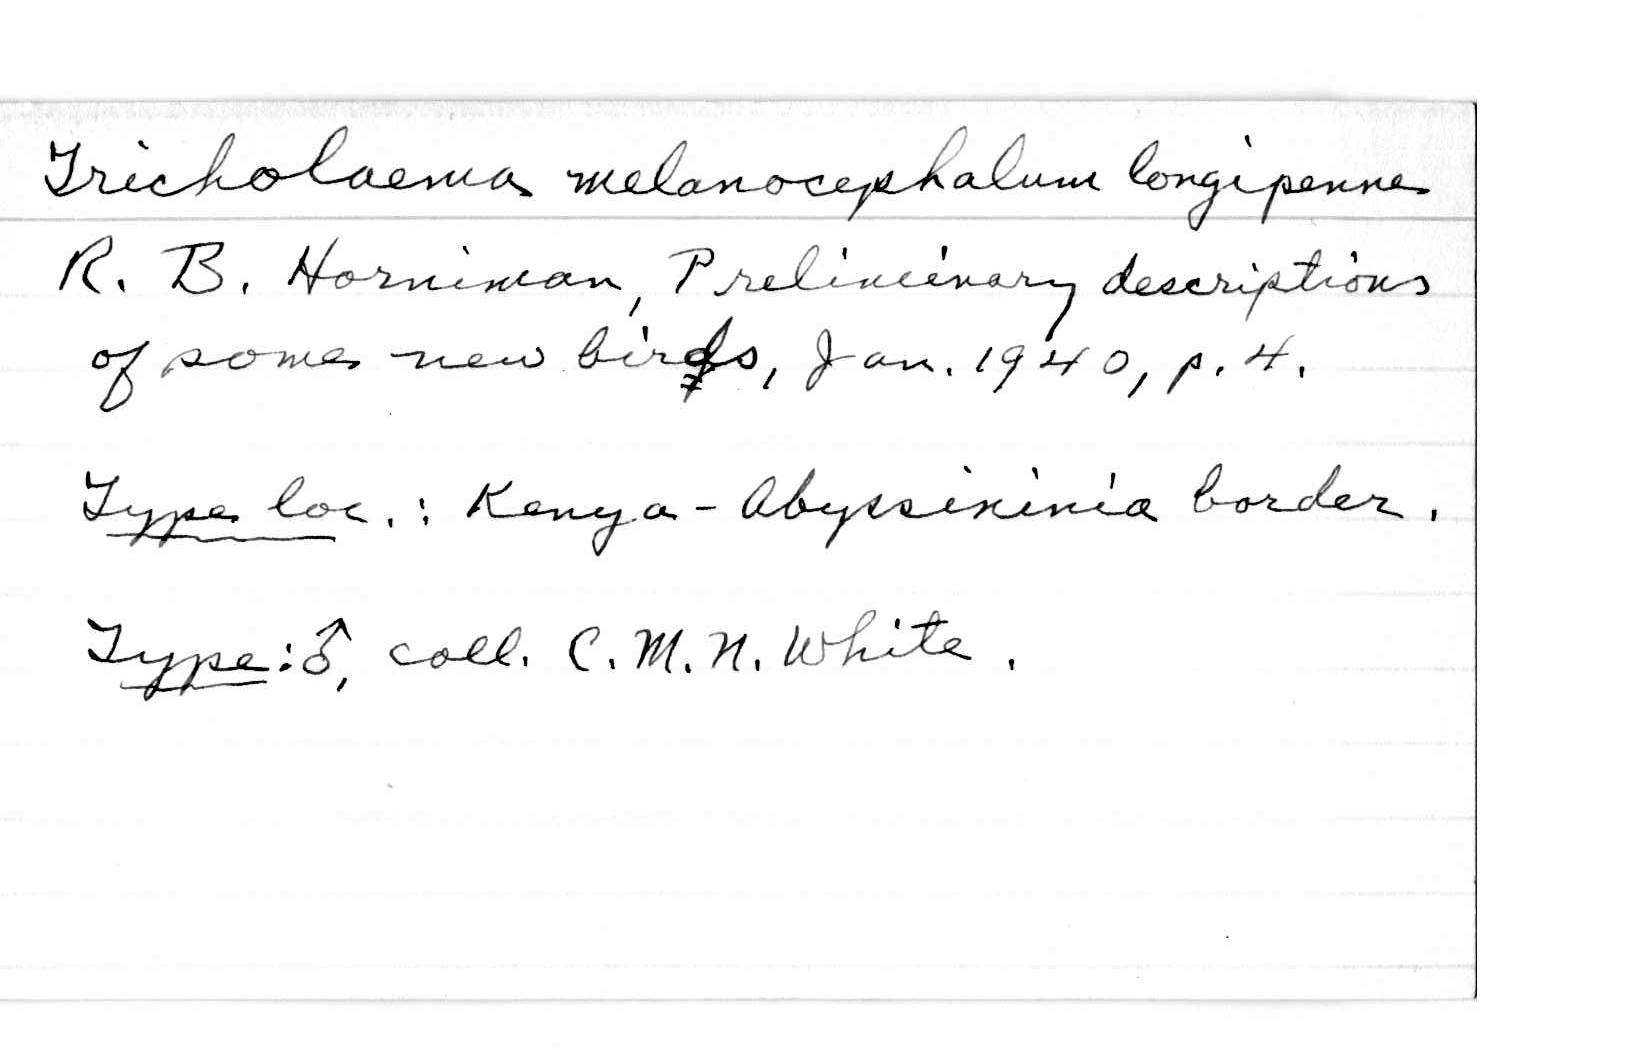 Tricholaema melanocephalum longipenne
R. B. Horniman, Preliminary descriptions
of some new birds, Jan. 1940, p. 4.
Type loc.: Kenya-Abyssininia border.
Type: ♂, coll. C. M. N. White.